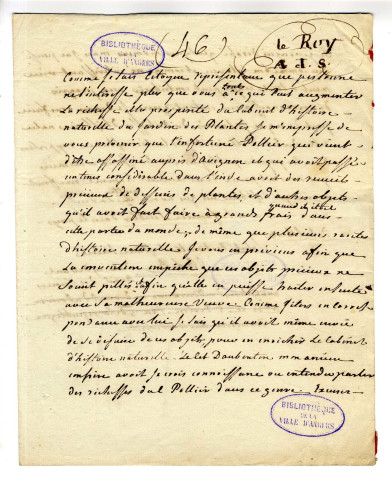 (46)
le Roy
A d. S.
BIBLIOTHÈQUE
DE LA
VILLE D'ANGERS
Comme je sais Citoyen représentant que personne
ne s'intéresse plus que vous à tout ce qui peut augmenter
la richesse et la prospérité du Cabinet d'histoire
naturelle du Jardin des Plantes je m'empresse de
vous prévenir que l'infortuné Pellier qui vient
d'être assassiné auprès d'Avignon et qui avoit passé
un tems considérable dans l'inde avoit des recueils
précieux de desseins de plantes, et d'autres objets
qu'il avoit fait faire à grands frais dans
quand il étoit
cette partie du monde, de même que plusieurs raretés
d'histoire naturelle. Je vous en préviens afin que
la convention empêche que ces objets précieux ne
soient pillés afin qu'elle en puisse traiter ensuite
avec sa malheureuse Veuve. Comme j'étois en corres
pondance avec lui je sais qu'il avoit même envie
de se défaire de ces objets, pour en enrichir le Cabinet
d'histoire naturelle. Le Cet Daubenton mon ancien
confrère avoit je crois connoissance ou entendu parler
des richesses du C Pellier dans ce genre.
BIBLIOTHÈQUE
DE LA
VILLE D'ANGERS